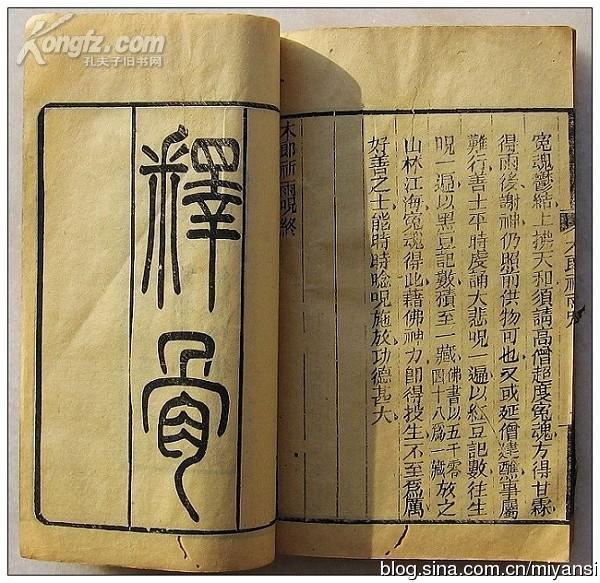 Kongfz.com
孔夫子旧书网
木郎祈雨呪
冤魂鬱結上拂天和須請高僧超度冤魂方得甘霖
得雨後謝神仍照前供物可也又或延僧建醮事屬
難行善士平時虔誦大悲呪一遍以紅豆記數往生
呪一遍以黑豆記數積至一藏佛書以五千零四十八爲一藏放之
山林江海冤魂得此藉佛神力卽得投生不至爲厲
好善之士能時時唸呪施放功德甚大
木郎祈雨呪終
釋骨
blog.sina.com.cn/miyansi